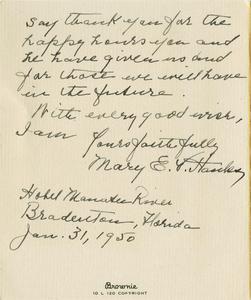 say thank you for the
happy hours you and
he have given us and
for those we will have
in the future.
With every good wish,
I am
Yours faithfully
Mary E. V. Hanley
Hotel Manatee River
Bradenton, Florida
Jan. 31, 1950
Brownie
10 L 120 COPYRIGHT